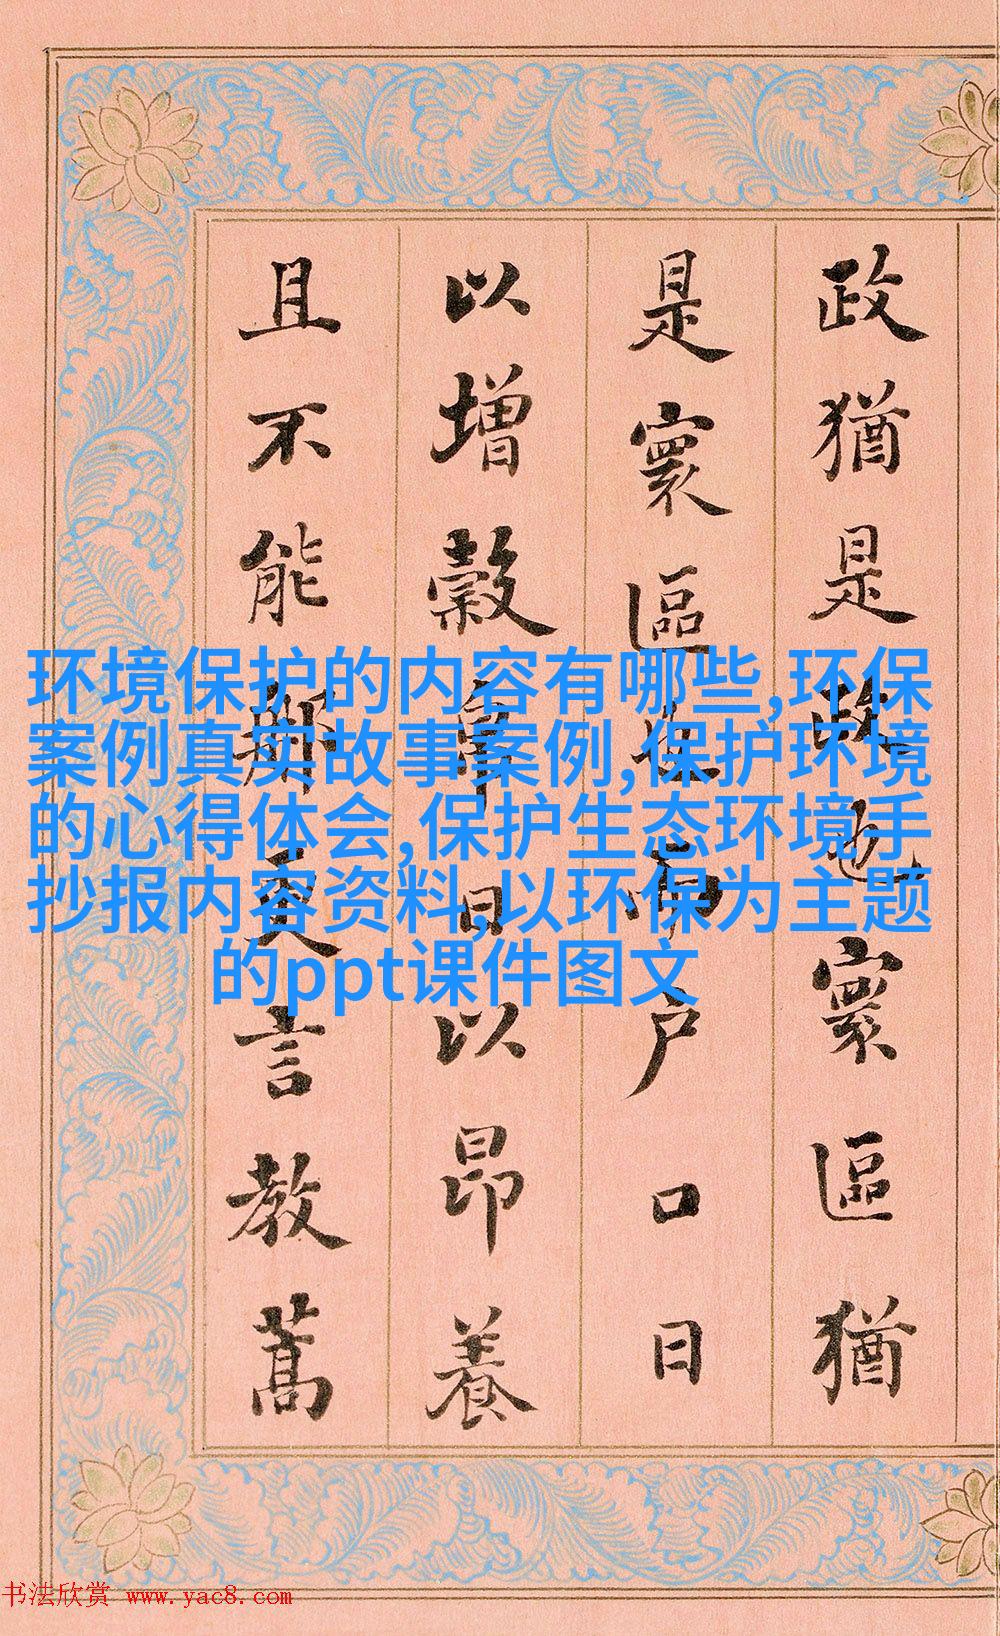 政猶是政也寰區猶
是寰區户口日
以增穀日以昂養
且不能言教蒿
环境保护的内容有哪些,环保
案例真实故事案例,保护环境
的心得体会,保护生态环境手
抄报内容资料,以环保为主题
的ppt课件图文
书法欣赏 www.yac8.com